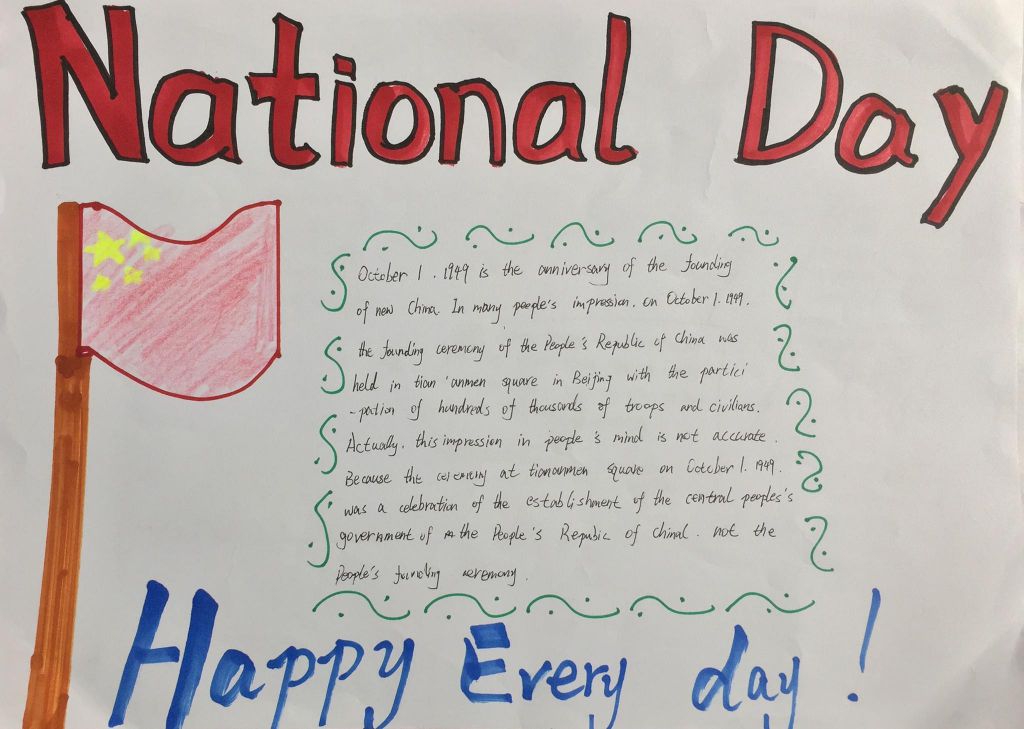 National Day
October 1. 1949 is the anniversary of the founding
of new China. In many people's impression, on October 1. 1949.
the founding ceremony of the People's Republic of China was
held in tian'anmen square in Beijing with the partici
-pation of hundreds of thousands of troops and civilians.
Actually, this impression in people's mind is not accurate.
Because the ceremony at tiananmen square on October 1. 1949.
was a celebration of the establishment of the central peoples's
government of the People's Republic of China. not the
People's founding ceremony.
Happy Every day!